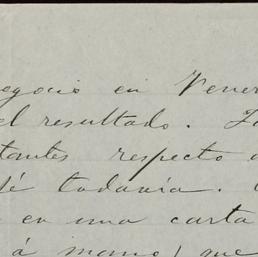 egocio en Vener
el resultado.
tantes respecto a
sé todavía.
en una carta
á mano, que